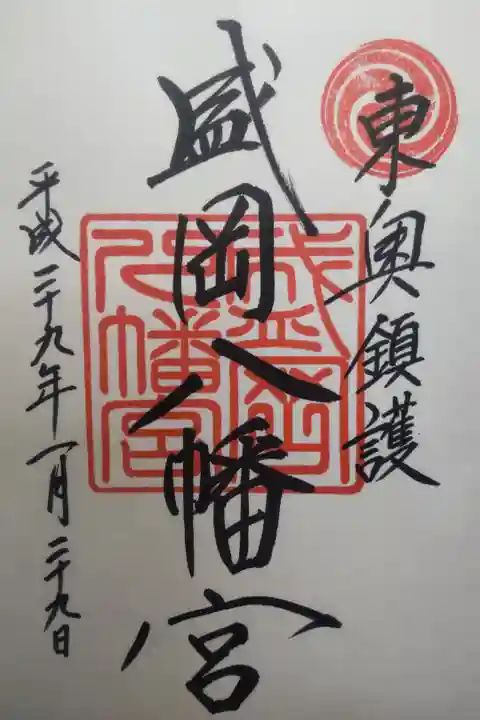 東奥鎮護
盛岡八幡宮
盛岡八幡宮
平成二十九年一月二十九日